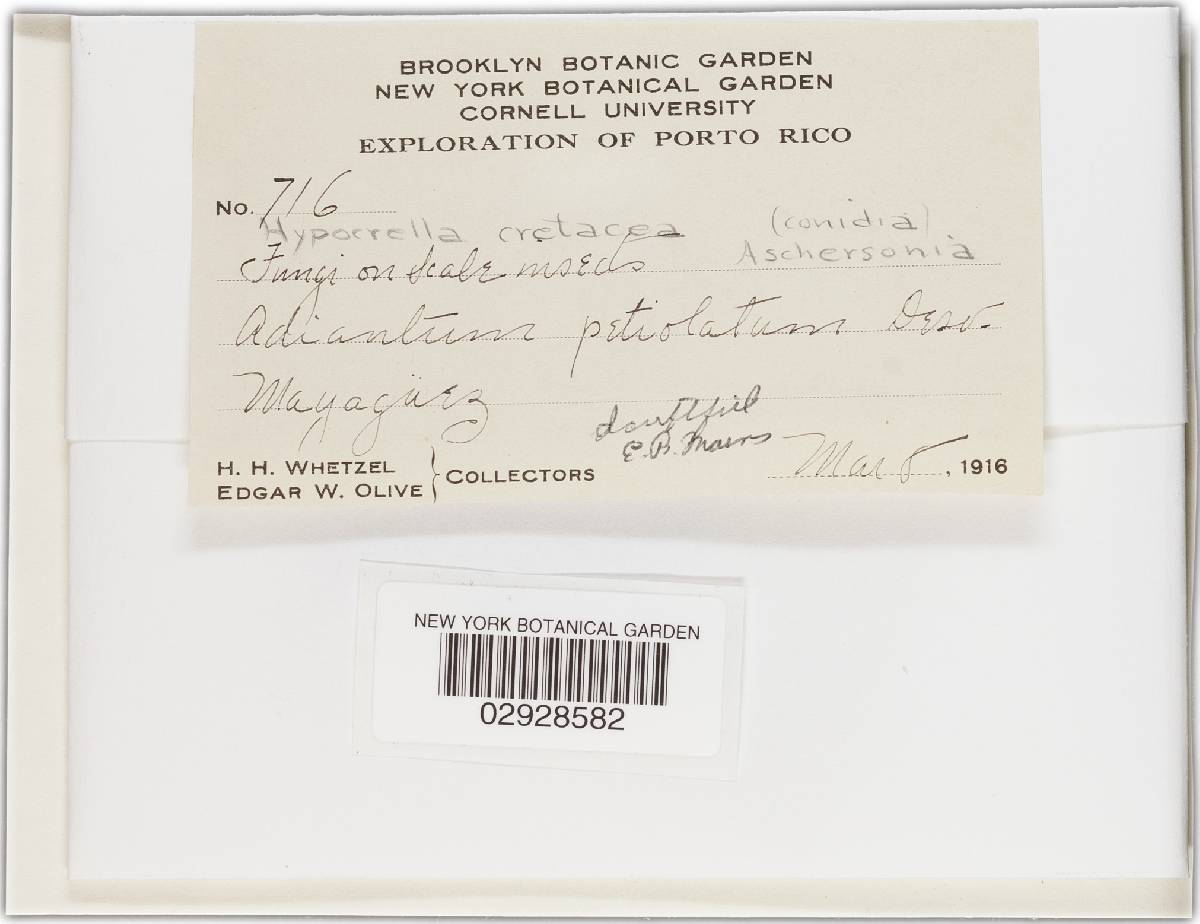 BROOKLYN BOTANIC GARDEN
NEW YORK BOTANICAL GARDEN
CORNELL UNIVERSITY
EXPLORATION OF PORTO RICO
No. 716
Hypocrella cretacea (conidia)
Aschersonia
Fungi on Scale insects
Adiantum petiolatum Desv.
Mayagüez
doubtful
E.B. Mains
H. H. WHETZEL
EDGAR W. OLIVE } COLLECTORS
Mar 5, 1916
NEW YORK BOTANICAL GARDEN
02928582